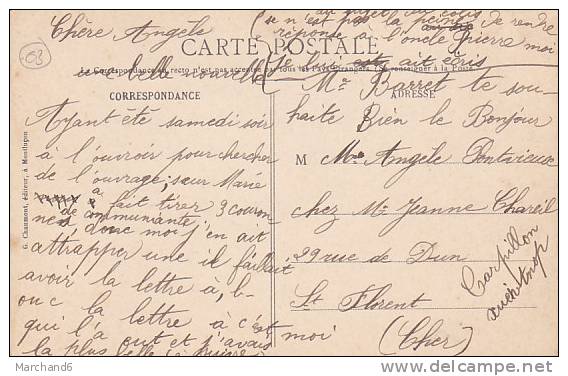 au sujet du colis
Chère Angèle
ce n'est pas la peine de rendre
réponse à l'oncle Pierre moi
CARTE POSTALE
je lui ait écris
63
La Correspondance au recto n'est pas acceptée par tous les Pays étrangers. (Se renseigner à la Poste)
CORRESPONDANCE
ADRESSE
Ayant été samedi soir
à l'ouvroir pour chercher
de l'ouvrage; sœur Marie
a fait tirer 3 couron-
nes de communiante
donc moi j'en ait
attrapper une il fallait
avoir la lettre à, b-
ouc la lettre
qui l'a out et j'avais à c'est moi
la plus belle
Me Barret te sou-
haite Bien le Bonjour
M Me Angèle
chez Me Jeanne Chareil
29 rue de Dun
St Florent
(Cher)
Carpillon
G. Chaumont, éditeur, à Montluçon
Marchand6
delcampe.net